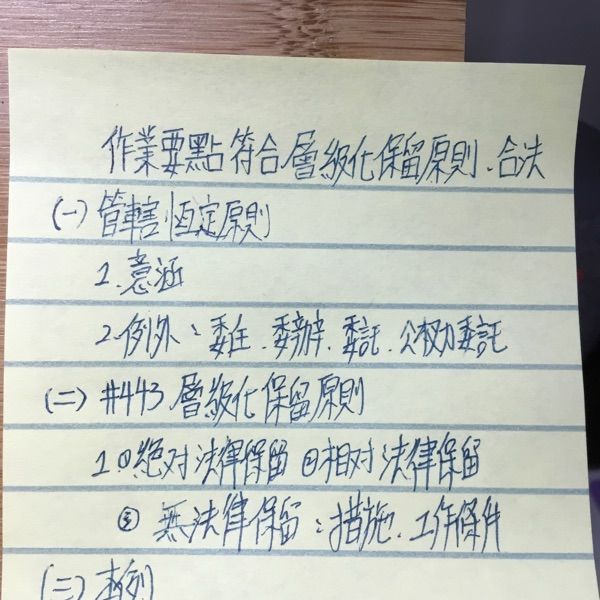 作業要點符合層級化保留原則、合法
(一) 管轄恆定原則
1. 意涵
2. 例外：委任、委辦、委託、公權力委託
(二) #443 層級化保留原則
1 ①絕对法律保留 ②相对法律保留
③ 無法律保留：措施、工作條件
(三) 本例